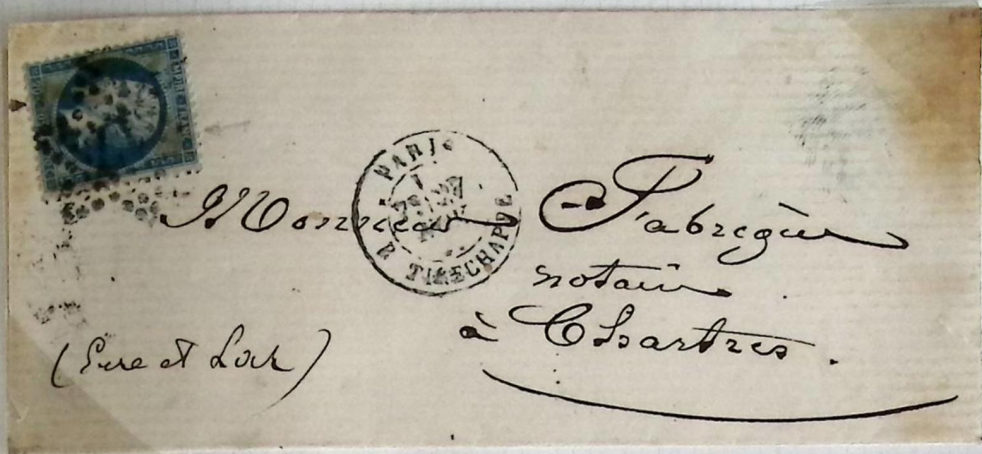 PARIS
R. TAITECHAPPE
Monsieur Fabregier
notaire
à Chartres.
(Eure et Loir)